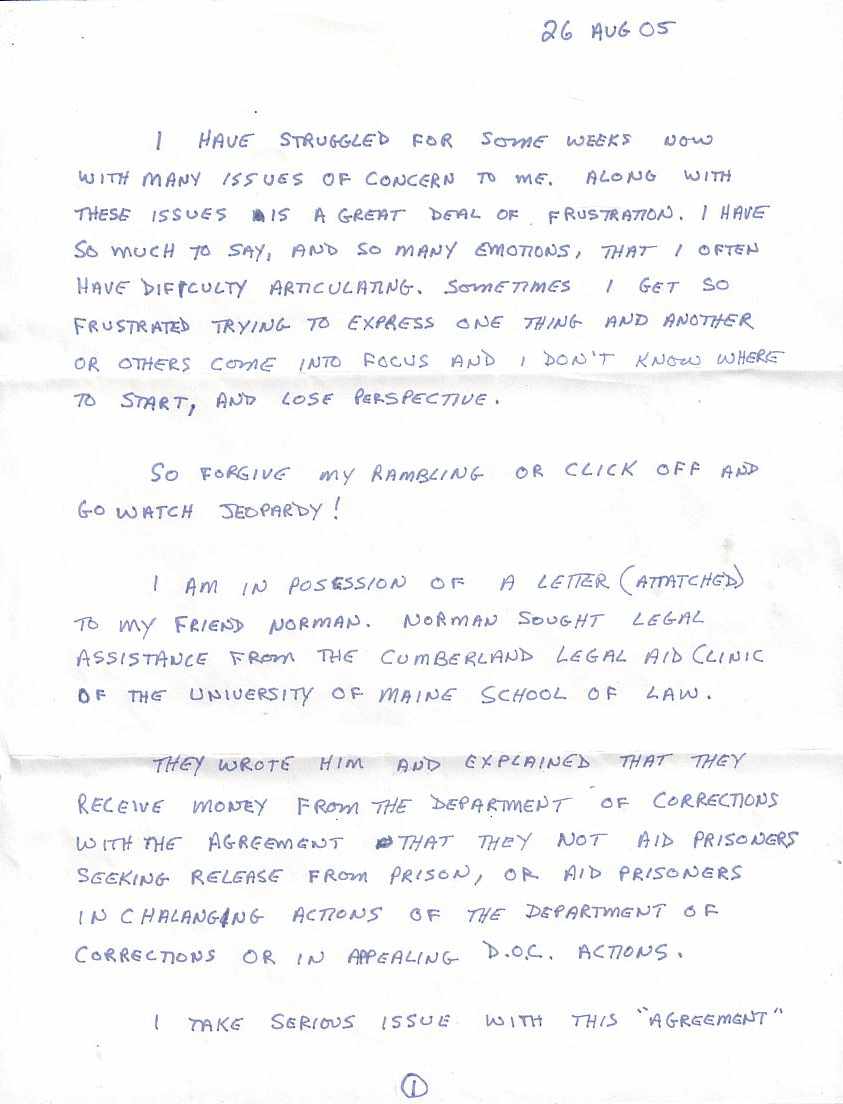 26 AUG 05
I HAVE STRUGGLED FOR SOME WEEKS NOW
WITH MANY ISSUES OF CONCERN TO ME. ALONG WITH
THESE ISSUES IS A GREAT DEAL OF FRUSTRATION. I HAVE
SO MUCH TO SAY, AND SO MANY EMOTIONS, THAT I OFTEN
HAVE DIFICULTY ARTICULATING. SOMETIMES I GET SO
FRUSTRATED TRYING TO EXPRESS ONE THING AND ANOTHER
OR OTHERS COME INTO FOCUS AND I DON'T KNOW WHERE
TO START, AND LOSE PERSPECTIVE.
SO FORGIVE MY RAMBLING OR CLICK OFF AND
GO WATCH JEOPARDY!
I AM IN POSESSION OF A LETTER (ATTATCHED)
TO MY FRIEND NORMAN. NORMAN SOUGHT LEGAL
ASSISTANCE FROM THE CUMBERLAND LEGAL AID CLINIC
OF THE UNIVERSITY OF MAINE SCHOOL OF LAW.
THEY WROTE HIM AND EXPLAINED THAT THEY
RECEIVE MONEY FROM THE DEPARTMENT OF CORRECTIONS
WITH THE AGREEMENT THAT THEY NOT AID PRISONERS
SEEKING RELEASE FROM PRISON, OR AID PRISONERS
IN CHALANGING ACTIONS OF THE DEPARTMENT OF
CORRECTIONS OR IN APPEALING D.O.C. ACTIONS.
I TAKE SERIOUS ISSUE WITH THIS "AGREEMENT"
1